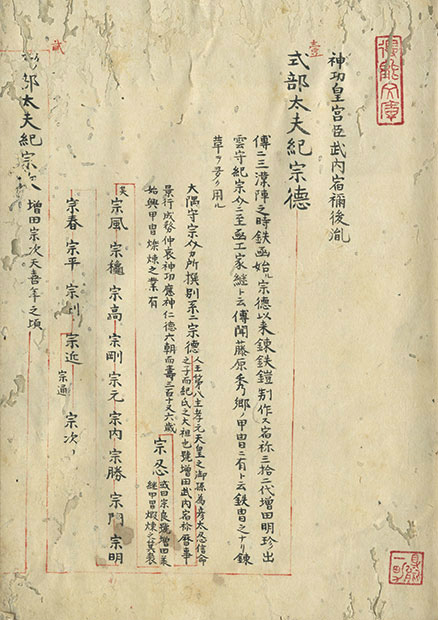 神功皇宮臣武内宿祢後胤
壹
式部太夫紀宗德
傳ニ三澤陣之時鉄面始ル宗德以来錬鉄鎧別作又宿祢三拾二代増田明珍出
雲守紀宗介ニ至面工家継ト云傳聞藤原秀郷ノ甲冑ニ有ト云鉄冑之ナリ錬
草ヲ多ク用ル
大隅守宗介力所撰別系ニ宗德
人王第八主孝元天皇之御孫為彦太忍信命
之子而紀氏之大祖也號増田武内宿祢暦事
景行成務仲哀神功應神仁德六朝而壽三百十又六歳
始興甲冑煅煉之業有
宗忍
或曰宗良號増田業
継甲冑煅煉之其裏
宗風 宗穐 宗高 宗剛 宗元 宗内 宗勝 宗門 宗明
宗春 宗平 宗 宗近 宗通 宗次
貳
部太夫紀宗
増田宗次天喜年之頃